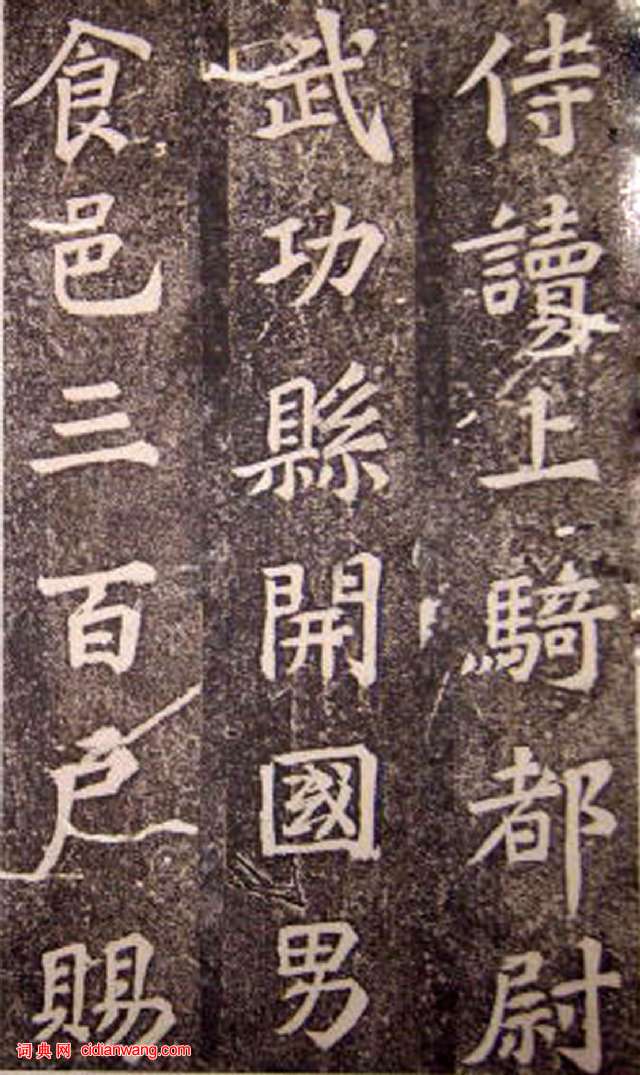 侍讀上騎都尉
武功縣開國男
食邑三百戶賜
词典网 cidianwang.com